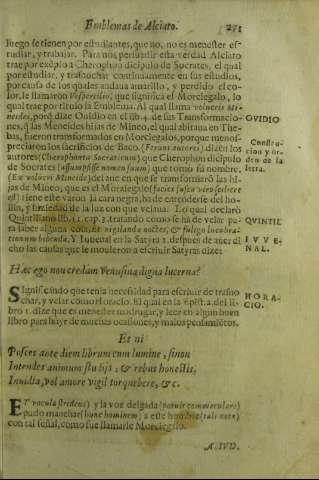 Emblemas de Alciato. 271
luego se tienen por estudiantes, que no, no es menester es-
tudiar, y trabajar. Para nos persuadir esta verdad Alciato
trae por exēplo a Cherophon dicipulo de Socrates, el qual
por estudiar, y trasnochar continuamente en sus estudios,
por causa de los quales andaua amarillo, y perdido el co-
lor, le llamaron Vespertilio, que significa el Morcielago, lo
qual trae por titulo la Emblema. Al qual llama volucris Mi-
neides, porq̃ dize Ouidio en el lib. 4. de sus Transformacio-
nes, q̃ las Meneides hijas de Mineo, el qual abitaua en The-
bas, fueron transformadas en Morcielagos, porque menos-
preciaron los sacrificios de Baco. (Ferunt autores) dizen los
autores (Cherophonta Socraticum) que Cherophon dicipulo
de Socrates (assumpsisse nomen suum) que tomò su nombre,
(Ex volucri Mineide) del aue en que se transformarõ las hi-
jas de Mineo, que es el Morcielago (facies fusca viro sed
est) tiene este varon la cara negra, ha de entenderse del ho-
llin, y suziedad de la luz con que velaua. Lo qual declarò
Quintiliano lib. 11. cap. 3. tratando como se ha de velar pa-
ra saber alguna cosa, Et vigilanda noctes, & fuligo lucubra-
tionum bibenda. Y Iuuenal en la Satyra 1. despues de auer di
cho las causas que le mouieron a escriuir Satyras dize:
OVIDIO
Construc-
cion y or-
den de la
letra.
QVINTIL.
IVVE-
NAL.
Hæc ego non credam Venusina digna lucerna?
Significando que tenia necessidad para escriuir de trasno
char, y velar como Horacio. El qual en la Epist. 2. del li-
bro 1. dize que es menester madrugar, y leer en algun buen
libro para huyr de muchas ocasiones, y malos pensamiētos.
HORA-
CIO.
Et ni
Posces ante diem librum cum lumine, si non
Intendes animum studijs, & rebus honestis,
Inuidia, vel amore vigil torquebere, &c.
ET vocula stridens) y la voz delgada (potuit commaculare)
pudo manchar (hunc hominem) a este hombre (tali nota)
con tal señal, como fue llamarle Morcielago.
A. IVD.